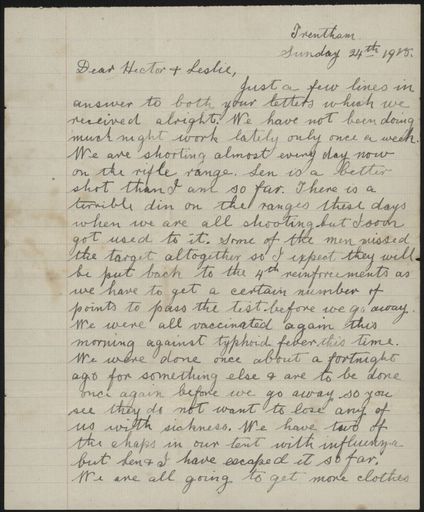 Trentham
Sunday 24th 1915.
Dear Hector & Leslie,
Just a few lines in
answer to both your letters which we
received alright. We have not been doing
much night work lately only once a week.
We are shooting almost every day now
on the rifle range. Len is a better
shot than I am so far. There is a
terrible din on the ranges these days
when we are all shooting but I soon
got used to it. Some of the men missed
the target altogether so I expect they will
be put back to the 4th reinforcements as
we have to get a certain number of
points to pass the test before we go away.
We were all vaccinated again this
morning against typhoid fever this time.
We were done once about a fortnight
ago for something else & are to be done
once again before we go away so you
see they do not want to lose any of
us with sickness. We have two of
the chaps in our tent with influenza
but Len & I have escaped it so far.
We are all going to get more clothes